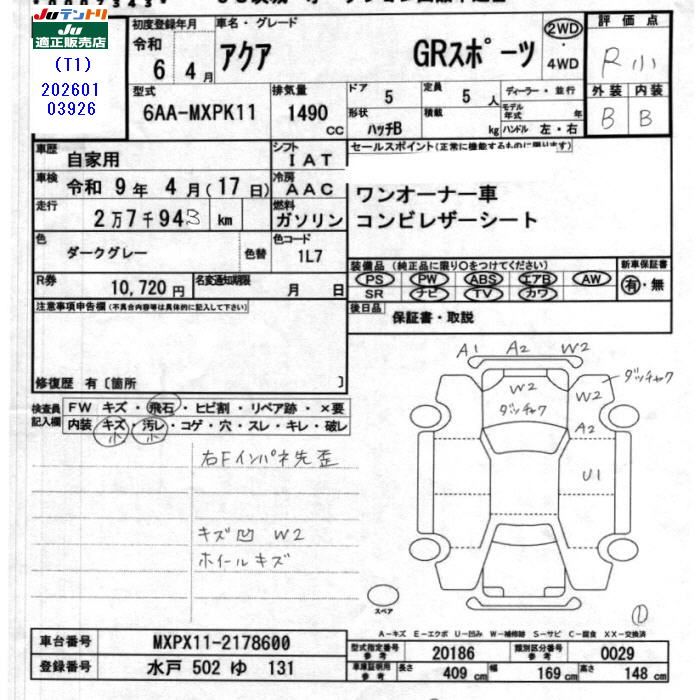 Juテントリ
JU 適正販売店
(T1)
202601
03926
初度登録年月 車名・グレード 2WD ・ 4WD 評価点
令和 6 4月 アクア GRスポーツ R小
型式 6AA-MXPK11
排気量 1490 CC
ドア 5 定員 5 人 ディーラー・並行
形状 ハッチB 積載 kg モデル年式 年 ハンドル 左・右
外装 内装
B B
車歴 自家用 シフト IAT
セールスポイント(正常に機能するものに限ります)
車検 令和 9年 4月(17日) 冷房 AAC
ワンオーナー車
走行 2万7千943 km 燃料 ガソリン
コンビレザーシート
色 ダークグレー 色替 色コード 1L7
装備品(純正品に限り○をつけてください) 新車保証書
PS PW ABS エアB AW 有・無
SR ナビ TV カワ
R券 10,720円 名変通知期限 月 日
後日品 保証書・取説
注意事項申告欄(不具合内容等は具体的に記入して下さい)
修復歴 有〔箇所 〕
検査員記入欄 FW キズ・飛石・ヒビ割・リペア跡・×要
内装 キズ・汚レ・コゲ・穴・スレ・キレ・破レ
小 小
右Fインパネ先歪
キズ凹 W2
ホイールキズ
A1 A2 W2
W2 ダッチャク
W2 ダッチャク
A2
U1
スペア
①
A-キズ E-エクボ U-凹み W-補修跡 S-サビ C-腐食 XX-交換済
車台番号 MXPX11-2178600
登録番号 水戸 502 ゆ 131
型式指定番号 参考 20186 類別区分番号 参考 0029
車庫証明用 参考 長さ 409 cm 幅 169 cm 高さ 148 cm